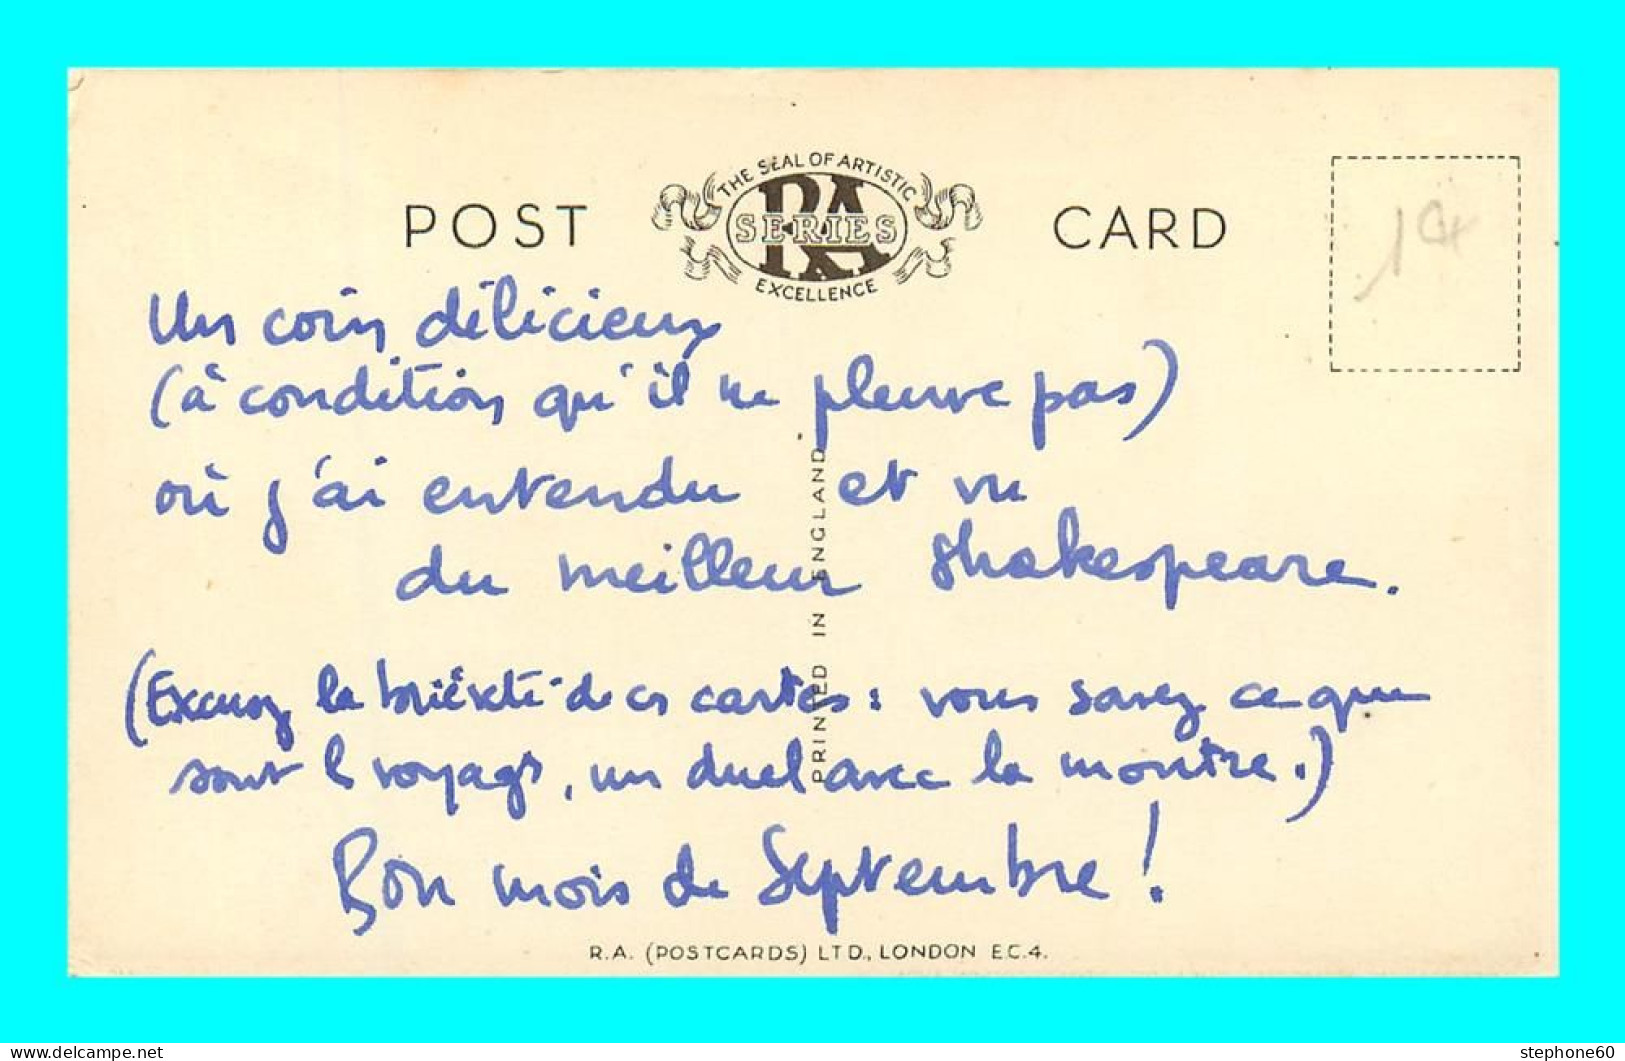 POST CARD
THE SEAL OF ARTISTIC
RA
SERIES
EXCELLENCE
Un coin délicieux
(à condition qu'il ne pleuve pas)
où j'ai entendu et vu
du meilleur Shakespeare.
(Excusez la brièveté de ces cartes : vous savez ce que
sont les voyages, un duel avec la montre.)
Bon mois de Septembre !
PRINTED IN ENGLAND
R.A. (POSTCARDS) LTD., LONDON E.C.4.
stephone60